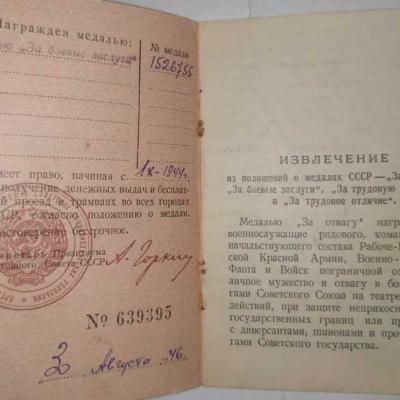 Награжден медалью:
ю „За боевые заслуги“
№ медали
1526755
еет право, начиная с 1 X-1944 г.
получение денежных выдач и бесплат-
проезд в трамваях во всех городах
СР, согласно положению о медали.
достоверение бессрочное.
кретарь Президиума
рховного Совета СССР А. Горкин
№ 639395
3 Августа 46 г.
ИЗВЛЕЧЕНИЕ
из положений о медалях СССР — „За
„За боевые заслуги“, „За трудовую
и „За трудовое отличие“.
Медалью „За отвагу“ наг
военнослужащие рядового, кома
начальствующего состава Рабоче-К
ской Красной Армии, Военно-
Флота и Войск пограничной ох
личное мужество и отвагу в бо
гами Советского Союза на театре
действий, при защите неприкосн
государственных границ или при
с диверсантами, шпионами и проч
гами Советского государства.